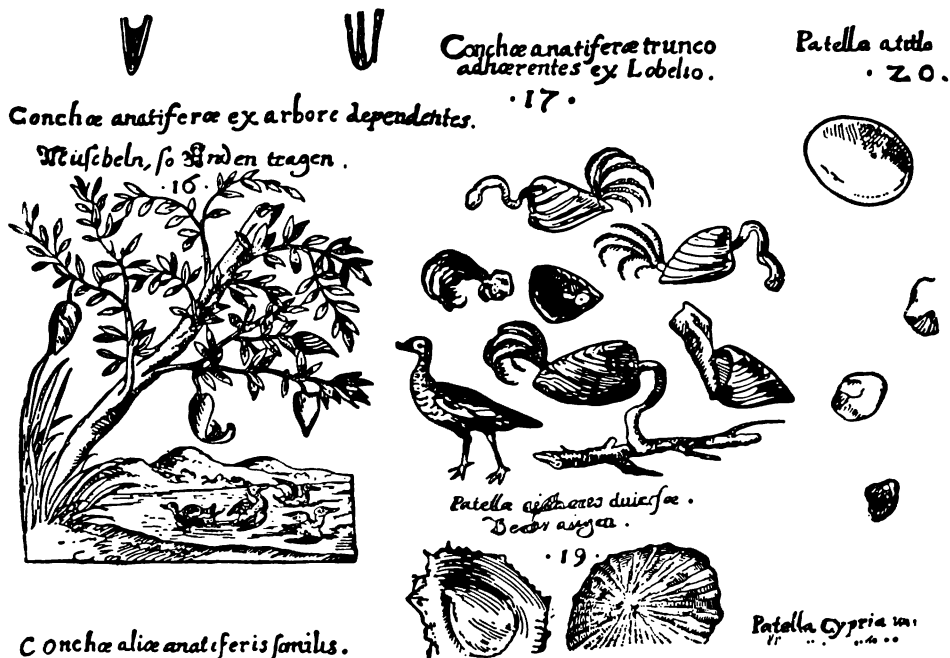 Conchæ anatiferæ trunco
adhærentes ex Lobelio.
·17·
Patella
·20.
Conchæ anatiferæ ex arbore dependentes.
Muscheln, so Enden tragen.
·16·
Patella duiersæ.
·19·
Conchæ aliæ anatiferis similis.
Patella Cypria